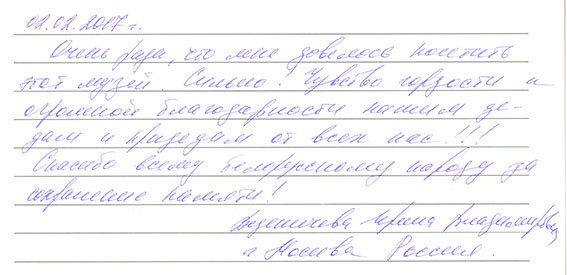 02.02.2017 г.
Очень рада, что мне довелось посетить
этот музей. Сильно! Чувство гордости и
огромной благодарности нашим де-
дам и прадедам от всех нас!!!
Спасибо всему белорусскому народу за
сохранение памяти!
Ирина Владимировна
г. Москва Россия.